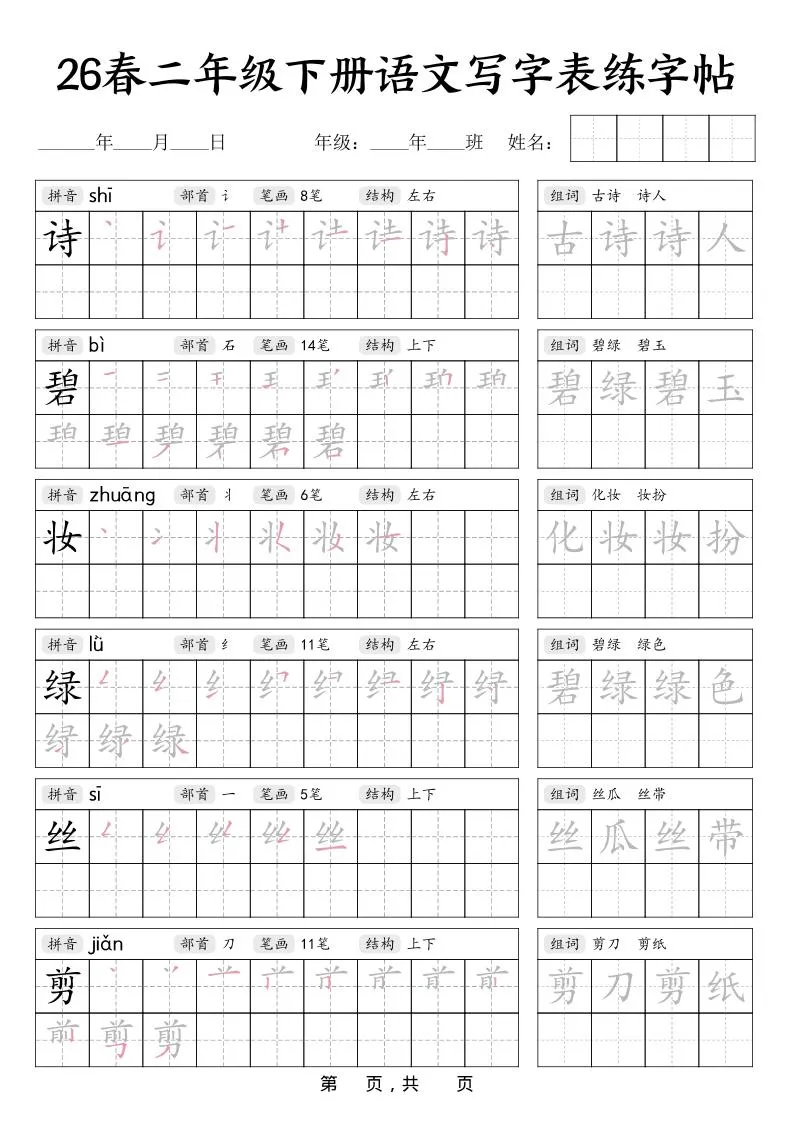 26春二年级下册语文写字表练字帖
______年____月____日 年级：____年____班 姓名：
拼音 shī 部首 讠 笔画 8笔 结构 左右 组词 古诗 诗人
诗 丶 讠 诗 古诗诗人
拼音 bì 部首 石 笔画 14笔 结构 上下 组词 碧绿 碧玉
碧 一 二 王 碧绿碧玉
碧
拼音 zhuāng 部首 丬 笔画 6笔 结构 左右 组词 化妆 妆扮
妆 丶 冫 丬 妆 化妆妆扮
拼音 lǜ 部首 纟 笔画 11笔 结构 左右 组词 碧绿 绿色
绿 纟 碧绿绿色
绿
拼音 sī 部首 一 笔画 5笔 结构 上下 组词 丝瓜 丝带
丝 丝 丝瓜丝带
拼音 jiǎn 部首 刀 笔画 11笔 结构 上下 组词 剪刀 剪纸
剪 丶 剪刀剪纸
前 剪
第 页，共 页